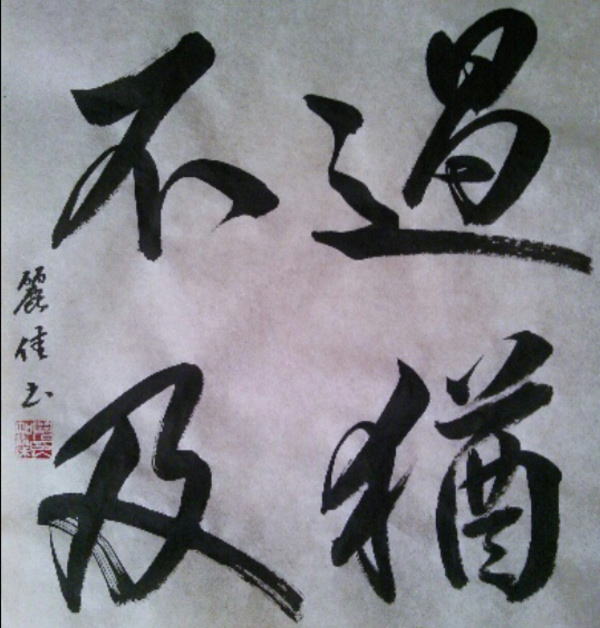 過猶
不及
麗佳书